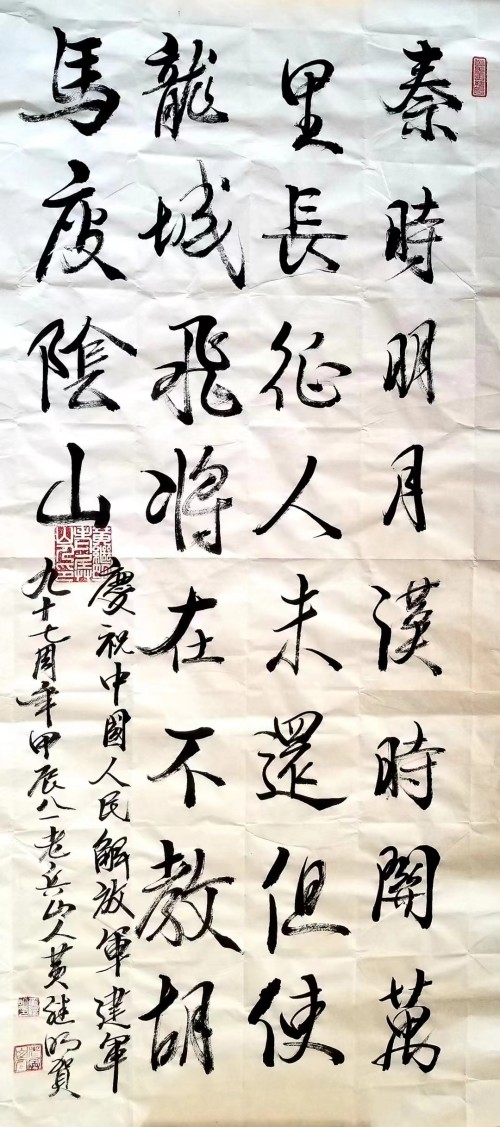 秦時明月漢時關萬
里長征人未還但使
龍城飛將在不教胡
馬度陰山
慶祝中國人民解放軍建軍
九十七周年甲辰八一老兵山人黄继明賀